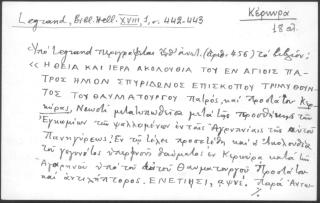 Legrand, Bibl. Hell. XVIII, 1, σ. 442-443
Κέρκυρα
18 αἰ.
Ὑπὸ Legrand περιγράφεται ὑπ' ἀριθ. 456) τὸ βιβλίον:
« Η ΘΕΙΑ ΚΑΙ ΙΕΡΑ ΑΚΟΛΟΥΘΙΑ ΤΟΥ ΕΝ ΑΓΙΟΙΣ ΠΑ-
ΤΡΟΣ ΗΜΩΝ ΣΠΥΡΙΔΩΝΟΣ ΕΠΙΣΚΟΠΟΥ ΤΡΙΜΥΘΟΥΝ-
ΤΟΣ ΤΟΥ ΘΑΥΜΑΤΟΥΡΓΟΥ Πατρός, καὶ Προστάτου Κερ-
κύρας, Νεωστὶ μετατυπωθεῖσα μετὰ τῆς προσθήκης τῶν
Ἐγκωμίων τῶν ψαλλομένων ἐν ταῖς Ἀγρυπνίαις τῆς αὐτοῦ
Πανηγύρεως. Ἐν τῷ τέλει προσετέθη καὶ ἡ Ἀκολουθία
τοῦ γεγονότος ὑπερφυοῦς θαύματος ἐν Κερκύρᾳ κατὰ τῶν
Ἀγαρηνῶν ὑπὸ τοῦ αὐτοῦ Θαυματουργοῦ Προστάτου
καὶ ἀντιλήπτορος. ΕΝΕΤΙΗΣΙ, αψνε. Παρὰ Ἀντω-